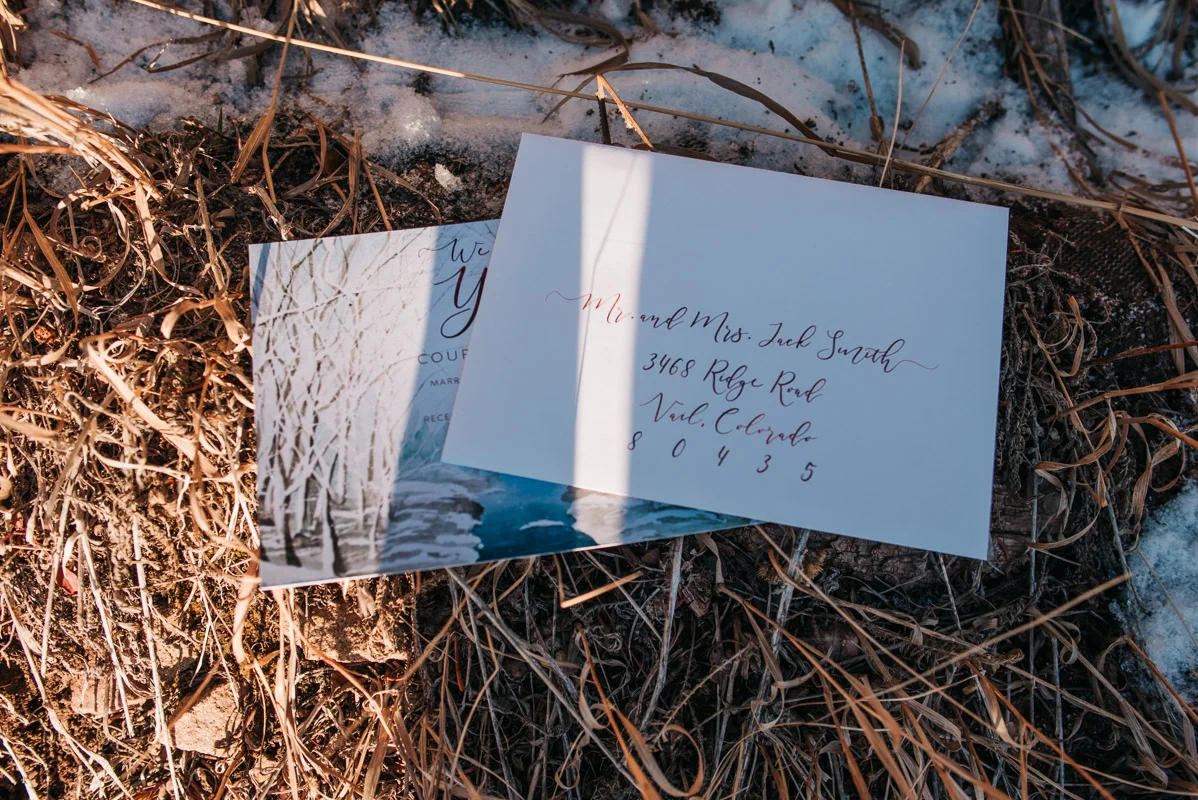 We
Y
COUR
MARR
RECE
Mr. and Mrs. Jack Smith
3468 Ridge Road
Vail, Colorado
8 0 4 3 5